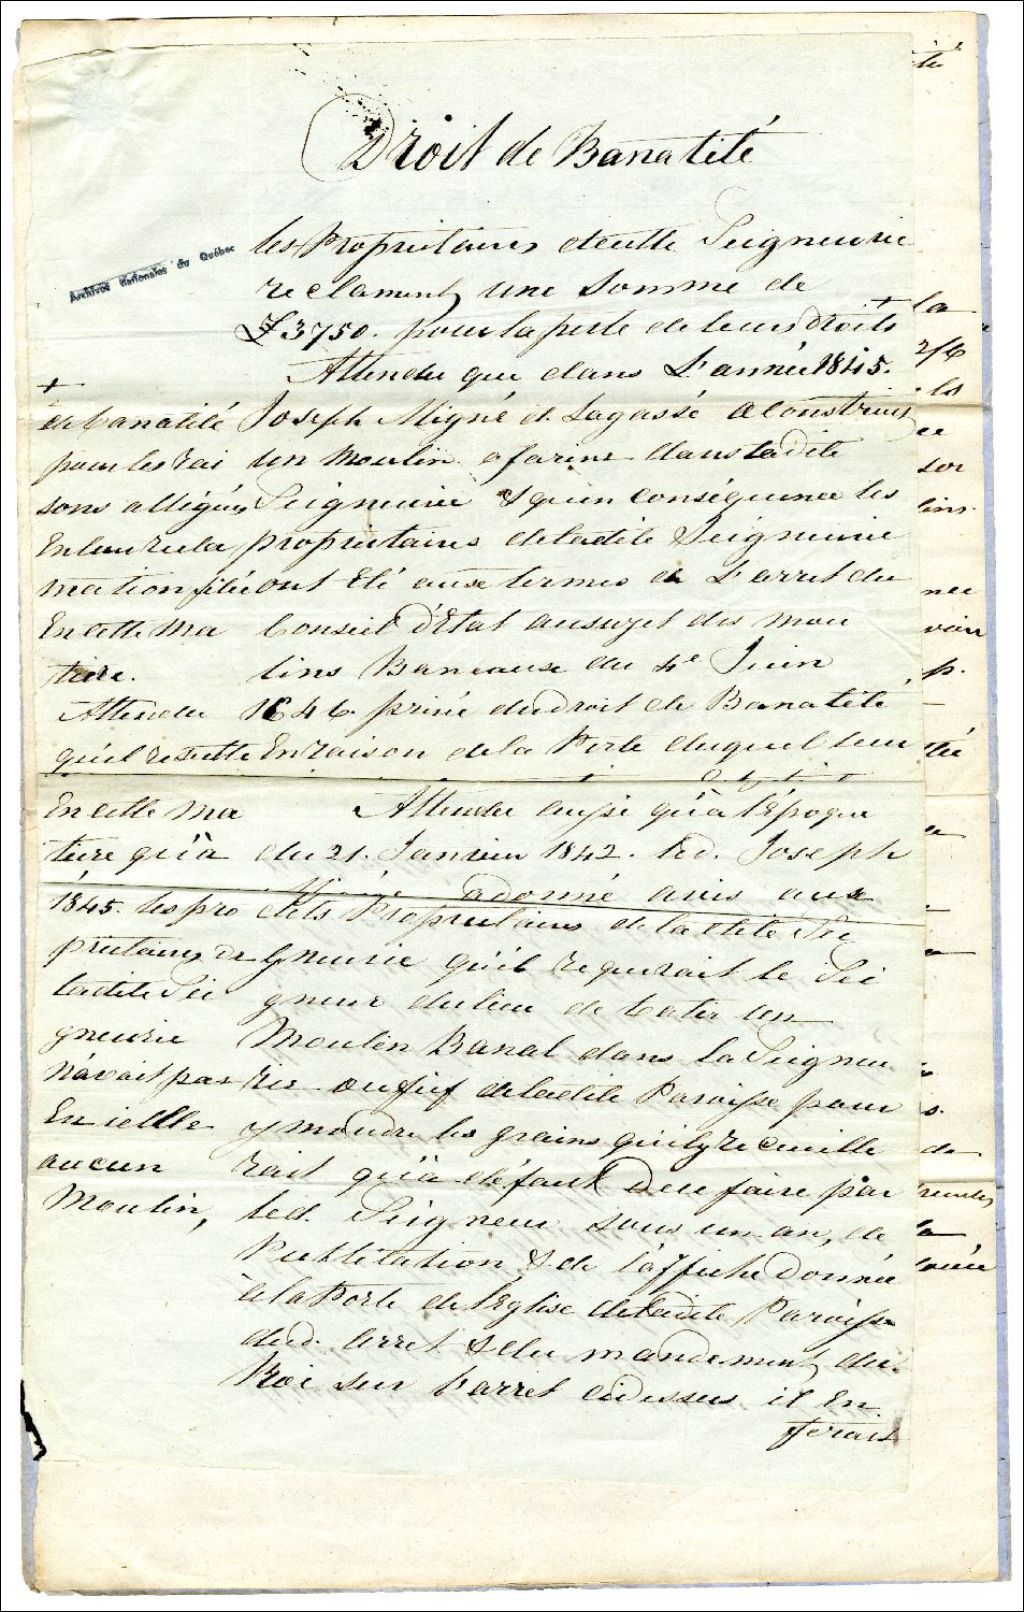 Droit de Banalité
Archives nationales du Québec
les Propriétaires de cette Seigneurie
réclament une somme de
£3750. pour la perte de leurs droits +
Attendu que dans L'année 1845.
Joseph Migné d. Lagassé a construit
un Moulin a farine dans ladite
Seigneurie & qu'en conséquence les
propriétaires de ladite Seigneurie
ont été aux termes de L'arret du
Conseil d'Etat au sujet des mou
lins Banaux du 4e Juin
1646. privé du Droit de Banalité
En raison de la Perte duquel leur
Attendu aussi qu'a l'époque
du 21. Janvier 1842. led. Joseph
Migné a donné avis aux
dits Propriétaires de la dite Sei
gneurie qu'il requerait le Sei
gneur du lieu de batir un
Moulin Banal dans la Seigneu
rie ou fief de ladite Paroisse pour
y moudre les grains qu'il y recueille
rait qu'à défaut De le faire par
led. Seigneur sous un an, de
Publication & de l'affiche Donnée
à la Porte de l'Eglise de ladite Paroisse
dud. Arret & du mandement du
Roi sur l'arret cidessus il en
ferait
+
de banalité
pour les rai
sons alléguées
En leur récla
mation filée
En cette ma
tière.
Attendu
qu'il resulte
En cette ma
tière qu'à
1845. les pro
priétaires de
ladite Sei
gneurie
n'avait pas
En icelle
aucun
Moulin,
la
2/6
ls
ce
sor
lins.
nee
voir
p.
tée
a
s.
de
la